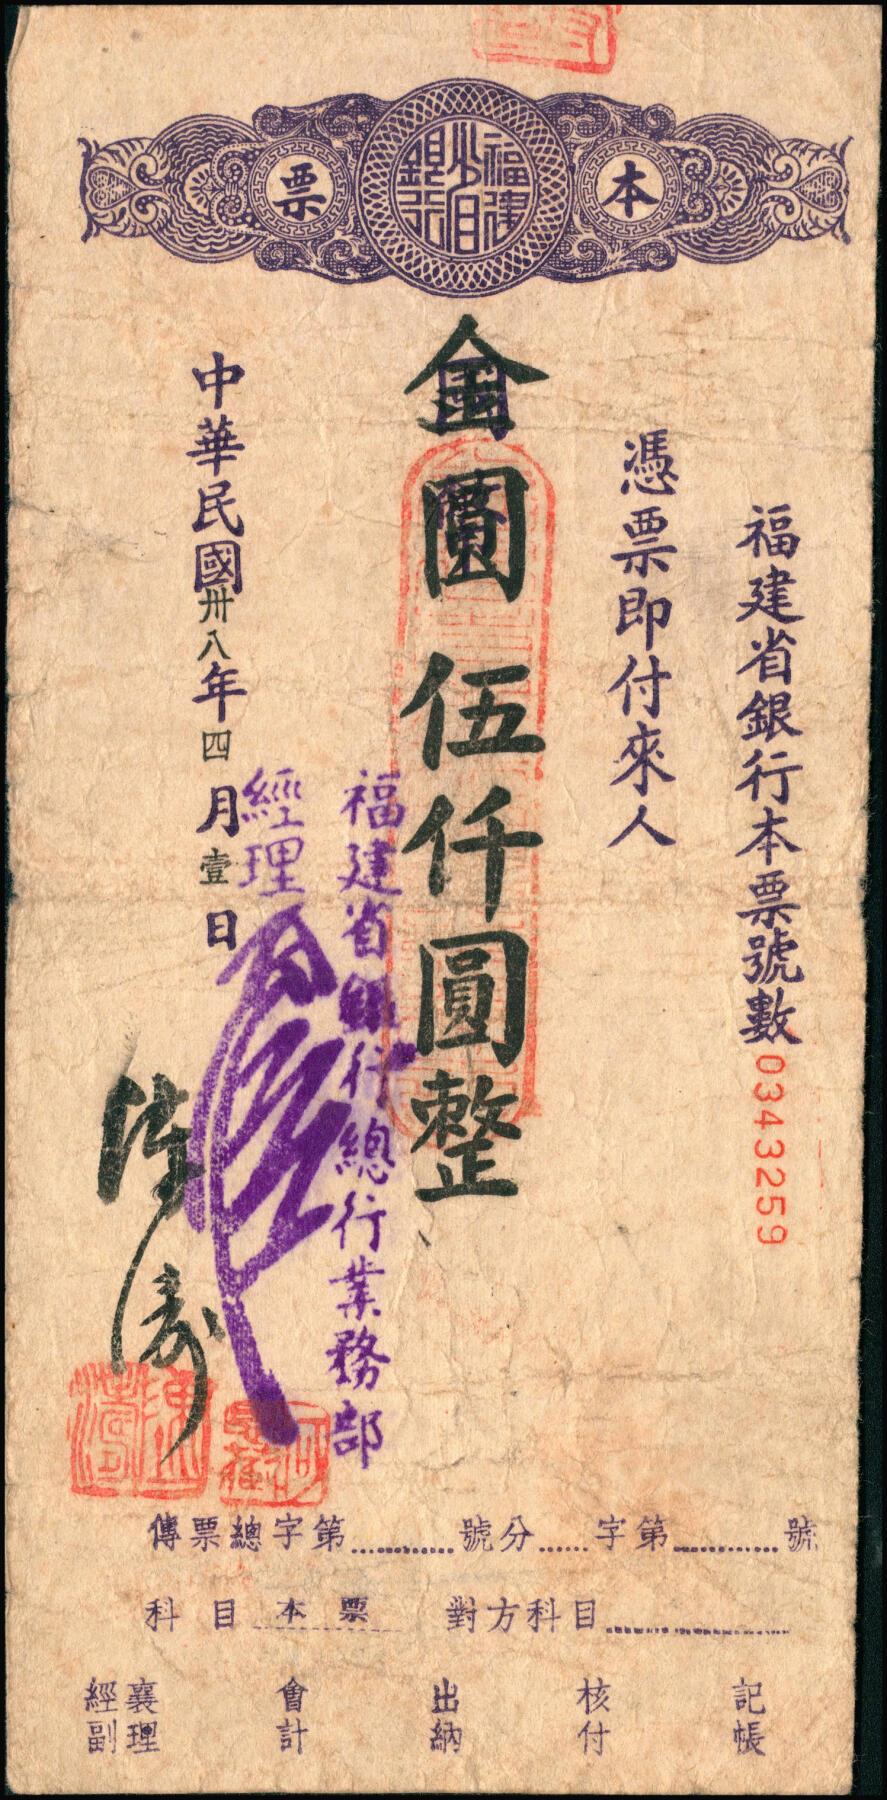 本票
福建省銀行
福建省銀行本票號數0343259
憑票即付來人
金圓伍仟圓整
福建省銀行總行業務部
經理
中華民國卅八年四月壹日
傳票總字第 號分 字第 號
科目 本票 對方科目
經副襄理 會計 出納 核付 記帳